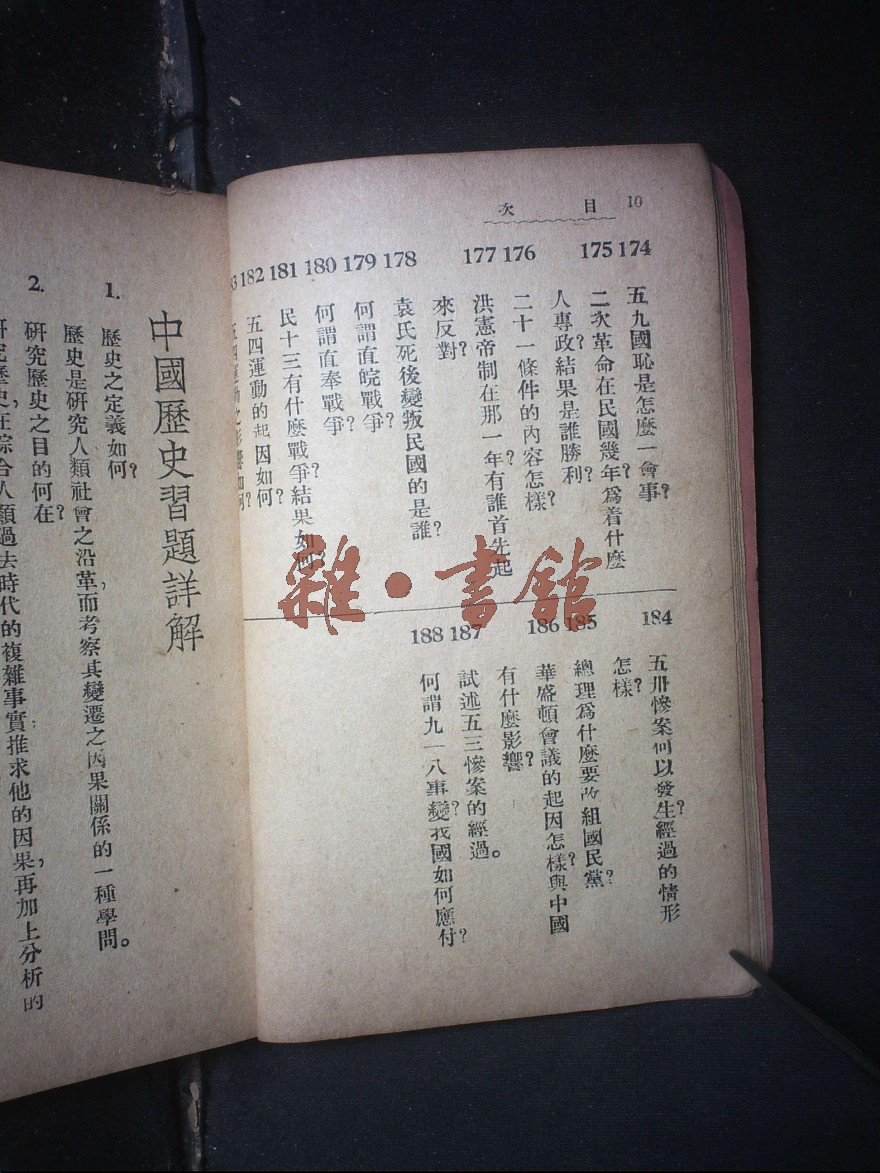 目　次
10
174 五九國恥是怎麼一會事？
175 二次革命在民國幾年？爲着什麼
人專政？結果是誰勝利？
176 二十一條件的內容怎樣？
177 洪憲帝制在那一年？有誰首先起
來反對？
178 袁氏死後變叛民國的是誰？
179 何謂直皖戰爭？
180 何謂直奉戰爭？
181 民十三有什麼戰爭？結果如何？
182 五四運動的起因如何？
3 五四運動之影響如何？
184 五卅慘案何以發生？經過的情形
怎樣？
185 總理爲什麼要改組國民黨？
186 華盛頓會議的起因怎樣？與中國
有什麼影響？
187 試述五三慘案的經過。
188 何謂九一八事變？我國如何應付？
中國歷史習題詳解
1. 歷史之定義如何？
歷史是研究人類社會之沿革，而考察其變遷之因果關係的一種學問。
2. 研究歷史之目的何在？
研究歷史，在綜合人類過去時代的複雜事實，推求他的因果，再加上分析的
雜·書館